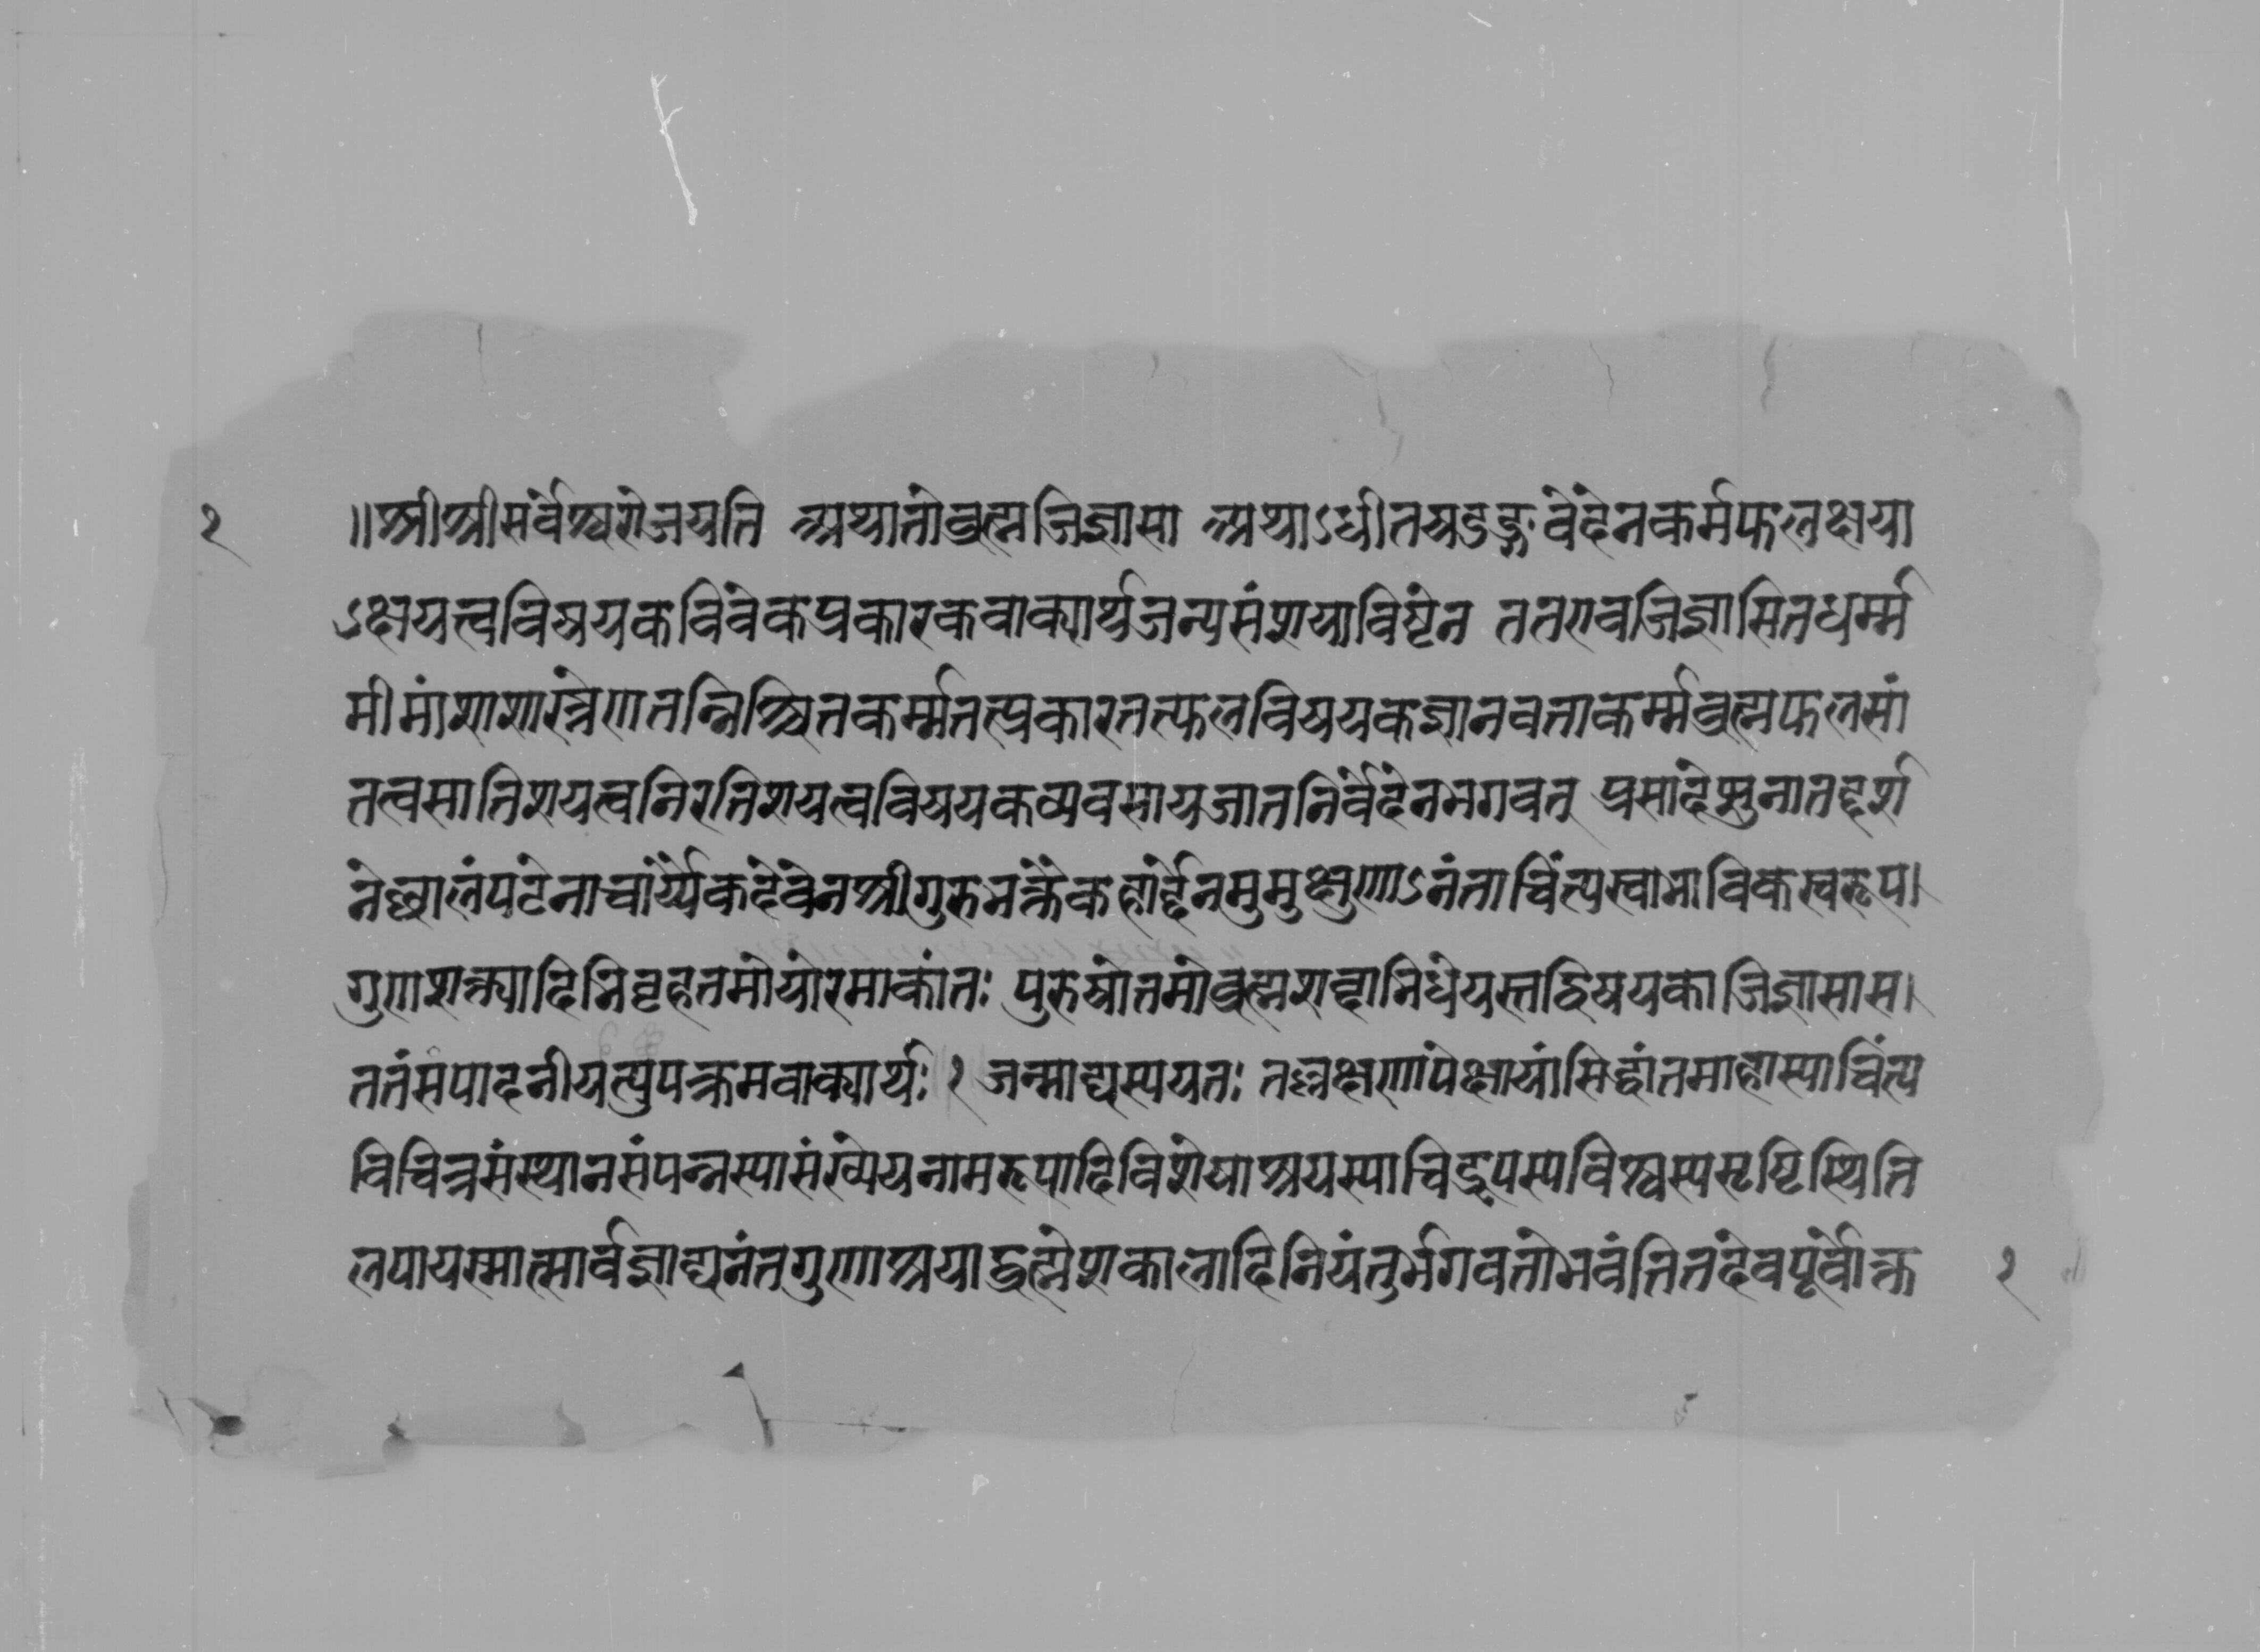 १ ॥श्रीश्रीसर्वेश्वरोजयति अथातोब्रह्मजिज्ञासा अथाऽधीतषडङ्गवेदेनकर्मफलक्षया
ऽक्षयत्वविषयकविवेकप्रकारकवाक्यार्थजन्यसंशयाविष्टेन ततएवजिज्ञासितधर्म्म
मीमांशाशास्त्रेणतन्निश्चितकर्म्मतत्प्रकारतत्फलविषयकज्ञानवताकर्म्मब्रह्मफलसां
तत्वसातिशयत्वनिरतिशयत्वविषयकव्यवसायजातनिर्वेदेनभगवत् प्रसादेप्सुनातद्दर्श
नेछालंपटेनाचार्य्यैकदेवेनश्रीगुरुभक्तैकहार्द्देनमुमुक्षुणाऽनंताचिंत्यस्वाभाविकस्वरूप।
गुणशक्त्यादिभिवृहत्तमोयोरमाकांतः पुरुषोत्तमोब्रह्मशब्दाभिधेयस्तद्विषयकाजिज्ञासास।
ततंसंपादनीयेत्युपक्रमवाक्यार्थः १ जन्माद्यस्ययतः तल्लक्षणापेक्षायांसिद्धांतमाहास्याचिंत्य
विचित्रसंस्थानसंपन्नस्यासंख्येयनामरूपादिविशेषाश्रयस्याचिद्रूपस्यविश्वस्यसृष्टिस्थिति
लयायस्मात्सार्वज्ञाद्यनंतगुणाश्रयाद्ब्रह्मेशकालादिनियंतुर्भगवतोभवंतितदेवपूर्वोक्त १